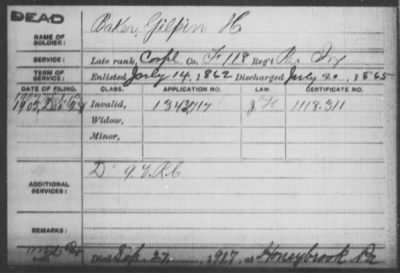 DEAD
NAME OF SOLDIER: Baker, Gilpin H
SERVICE: Late rank, Corpl Co. F 118 Reg't Pa Inf
TERM OF SERVICE: Enlisted July 14, 1862 Discharged July 20, 1865
DATE OF FILING. CLASS. APPLICATION NO. LAW. CERTIFICATE NO.
Invalid, 1118.311
Widow,
Minor,
ADDITIONAL SERVICES: D
REMARKS:
Died Sep. 27, 1917, at Honeybrook Pa